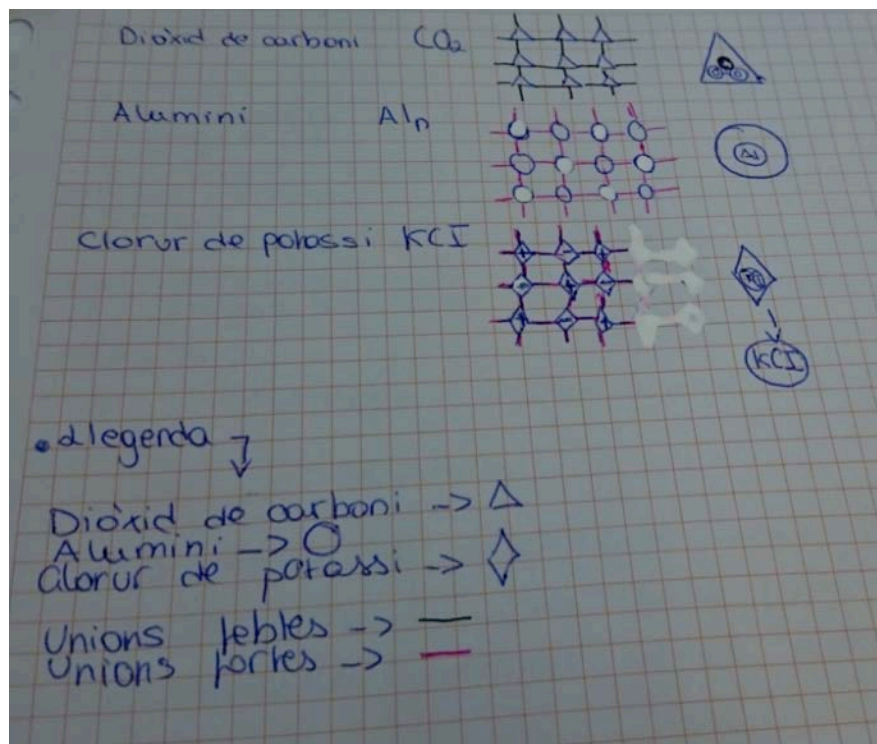 Diòxid de carboni CO2
Alumini Aln
Al
Clorur de potassi KCI
KCI
Llegenda
Diòxid de carboni -> △
Alumini -> ○
Clorur de potassi -> ◇
Unions febles -> —
Unions fortes -> —